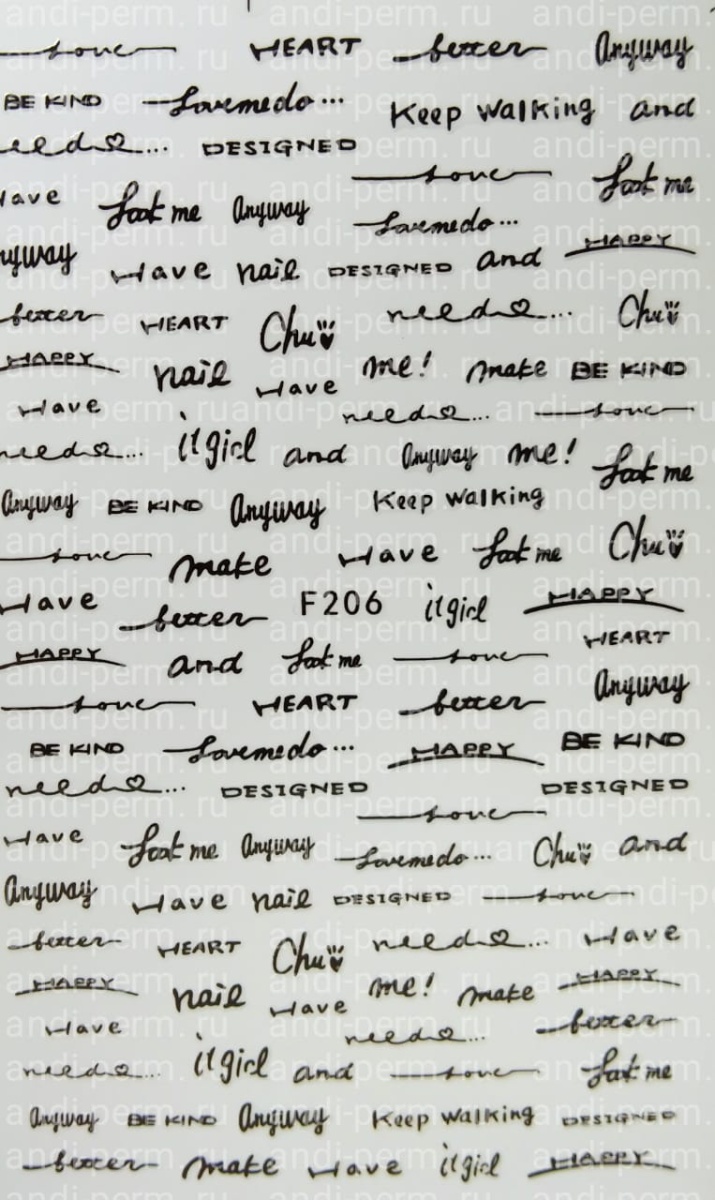 love HEART better Anyway
BE KIND Lovemedo... Keep walking and
need... DESIGNED
love Look me
Have Look me Anyway Lovemedo...
nyway Have nail DESIGNED and HAPPY
better HEART Chu need... Chu
HAPPY nail Have me! make BE KIND
Have need... love
need... it girl and Anyway me! Look me
Anyway BE KIND Anyway Keep walking
love make Have Look me Chu
Have better F206 it girl HAPPY
HAPPY and Look me love HEART
love HEART better Anyway
BE KIND Lovemedo... HAPPY BE KIND
need... DESIGNED DESIGNED
love
Have Look me Anyway Lovemedo... Chu and
Anyway Have nail DESIGNED love
better HEART Chu need... Have
HAPPY nail Have me! make HAPPY
Have need... better
need... it girl and love Look me
Anyway BE KIND Anyway Keep walking DESIGNED
better make Have it girl HAPPY
andi-perm.ru